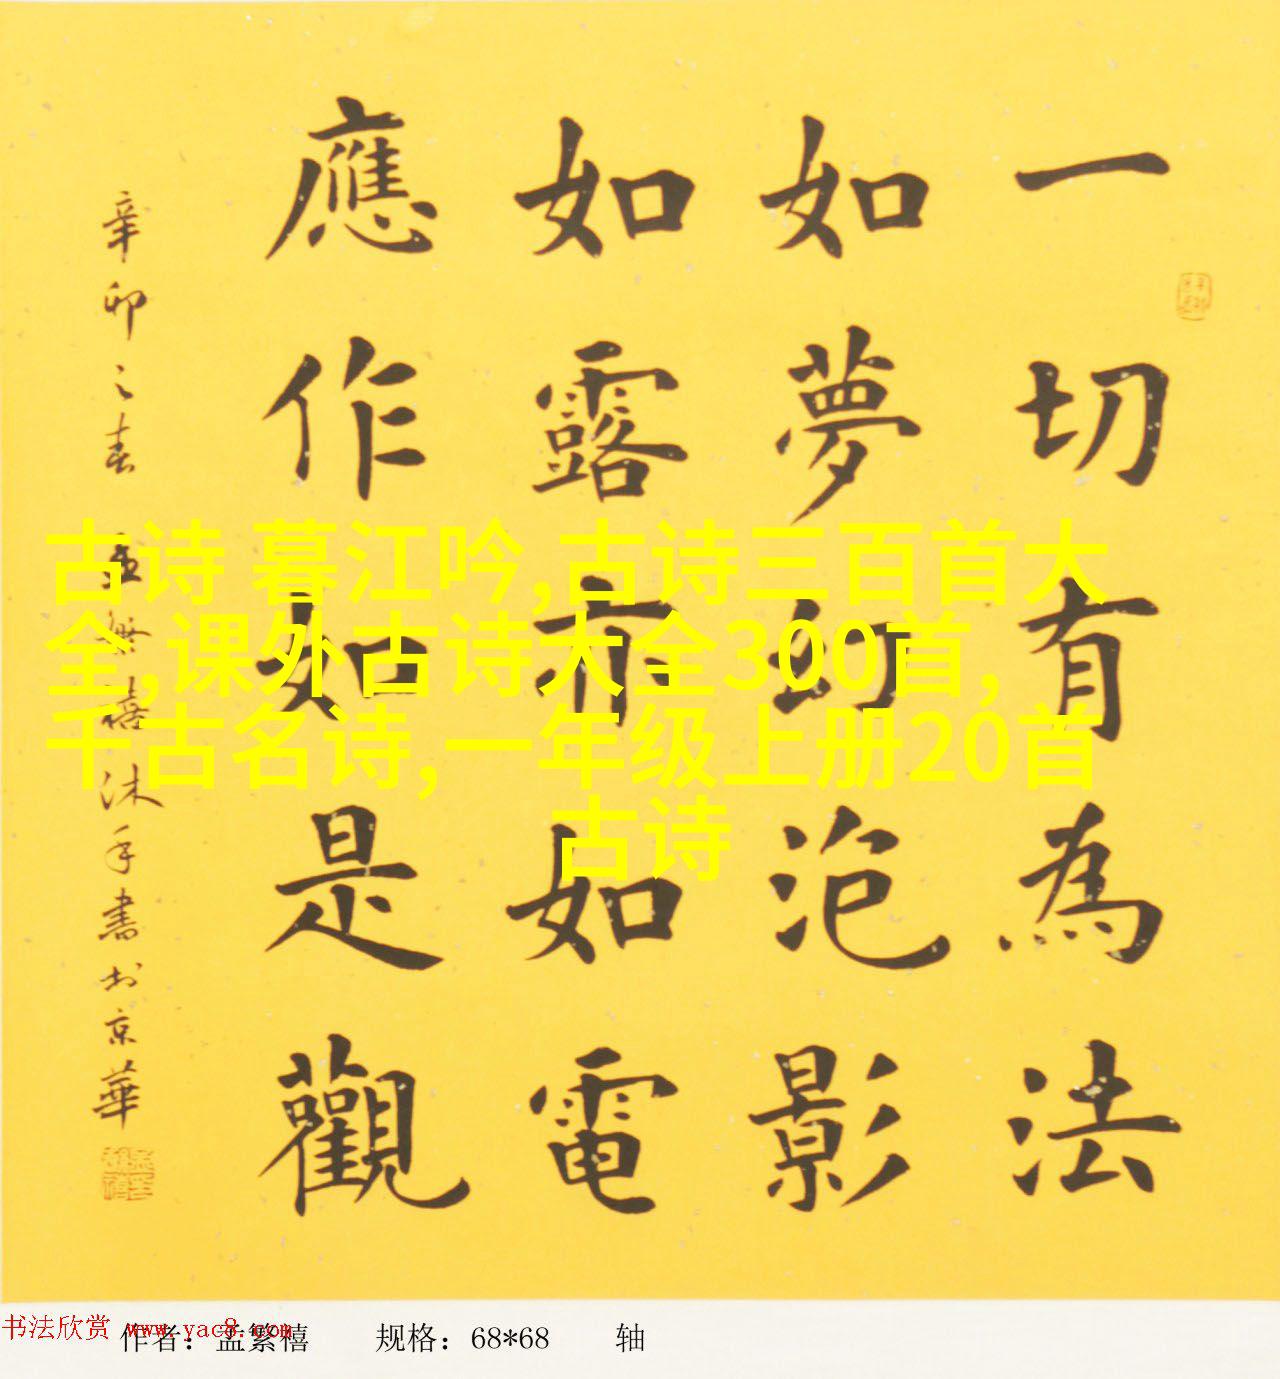 一切有為法
如夢幻泡影
如露亦如電
應作如是觀
辛卯之春 孟繁禧沐手書於京華
古诗 暮江吟,古诗三百首大
全,课外古诗大全300首,
千古名诗,一年级上册20首
古诗
书法欣赏 www.yac8.com
作者：孟繁禧 规格：68*68 轴